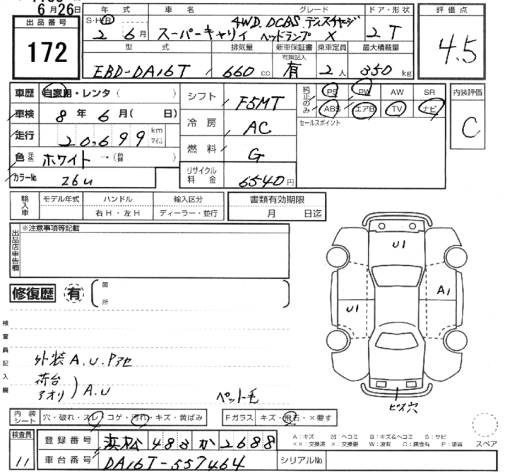 6月26日
出品番号
172
年式 車名 グレード ドア・形状
S・H・R 2 6月 スーパーキャリイ 4WD. DCBS. ディスチャージ ヘッドランプ X 2T
型式 排気量 新車保証書 有 乗車定員 最大積載量
EBD-DA16T 660cc 有 2人 350kg
評価点
4.5
車歴 自家用・レンタ
車検 8年6月( 日)
走行 20,699 km マイル
色 ホワイト→( )替
カラーNo. 26U
シフト F5MT
冷房 AC
燃料 G
リサイクル料金 6540円
PS PW AW SR
ABS エアB TV ナビ
セールスポイント
内装評価
C
輸入車 モデル年式 ハンドル 輸入区分
右H・左H ディーラー・並行
書類有効期限
月 日迄
出品店申告欄
※注意事項等記載
修復歴 有 箇所
検査員記入欄
外装A.U.Pアセ
荷台 アオリ A.U
ペット毛
U1
A1
U1
ビス穴
内装シート 穴・破れ・スレ コゲ・汚れ・キズ・黄ばみ Fガラス キズ・飛石・×要す
スペア
検査員 11
登録番号 浜松 483 か 2688
車台番号 DA16T-557464 シリアルNo.